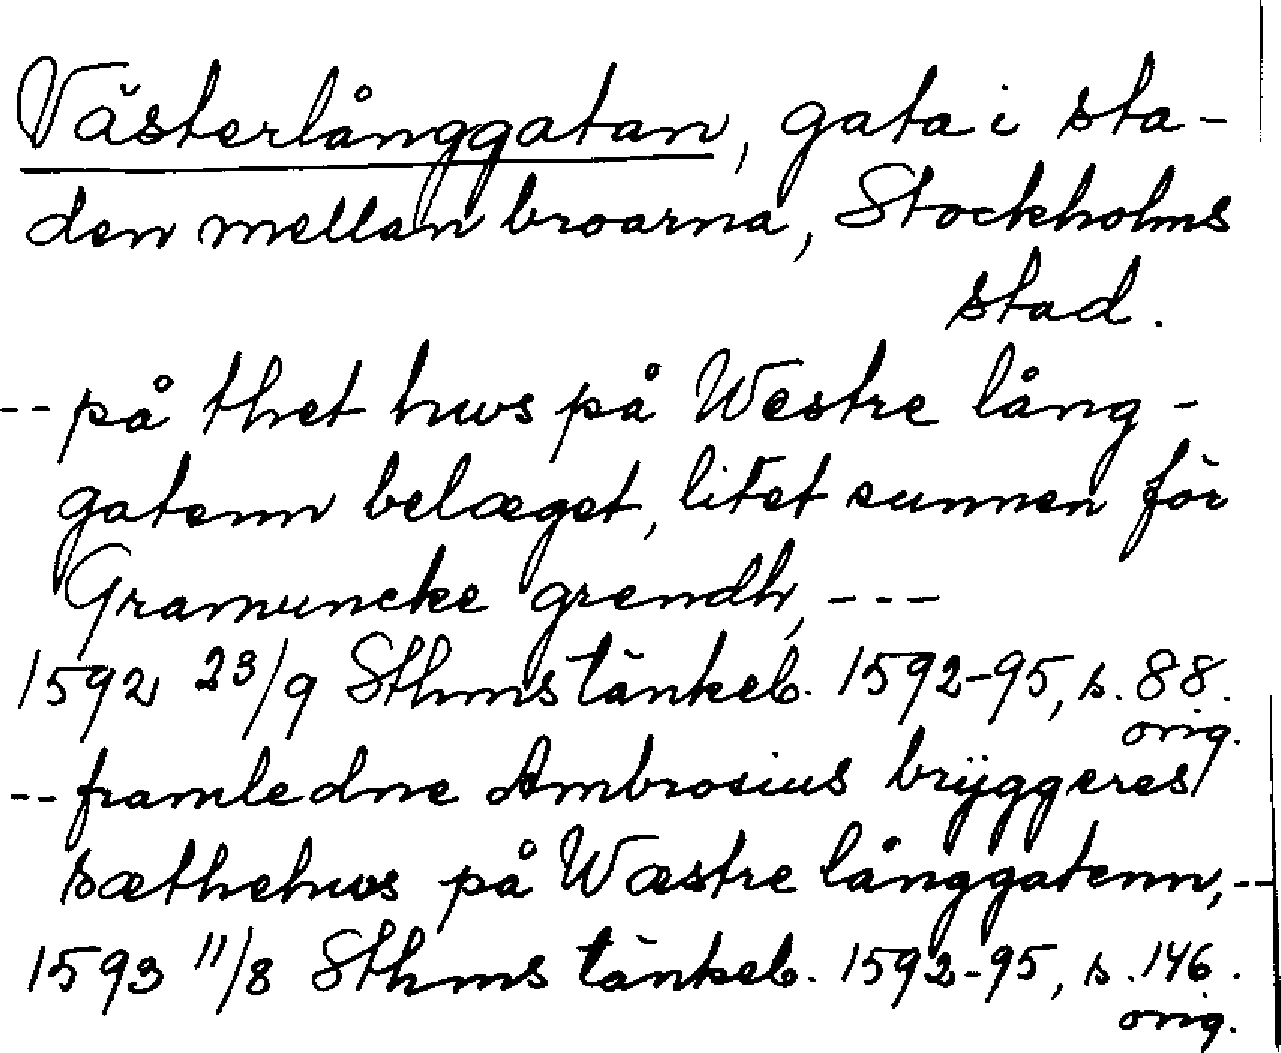 Västerlånggatan, gata i sta-
den mellan broarna, Stockholms
stad.
-- på thet hws på Westre lång-
gatenn belæget, litet sunnen för
Gramuncke grendh, ---
1592 23/9 Sthms tänkeb. 1592-95, s. 88.
orig.
-- framledne Ambrosius brÿggeres
sæthehws på Wæstre långgatenn, --
1593 11/8 Sthms tänkeb. 1592-95, s. 146.
orig.